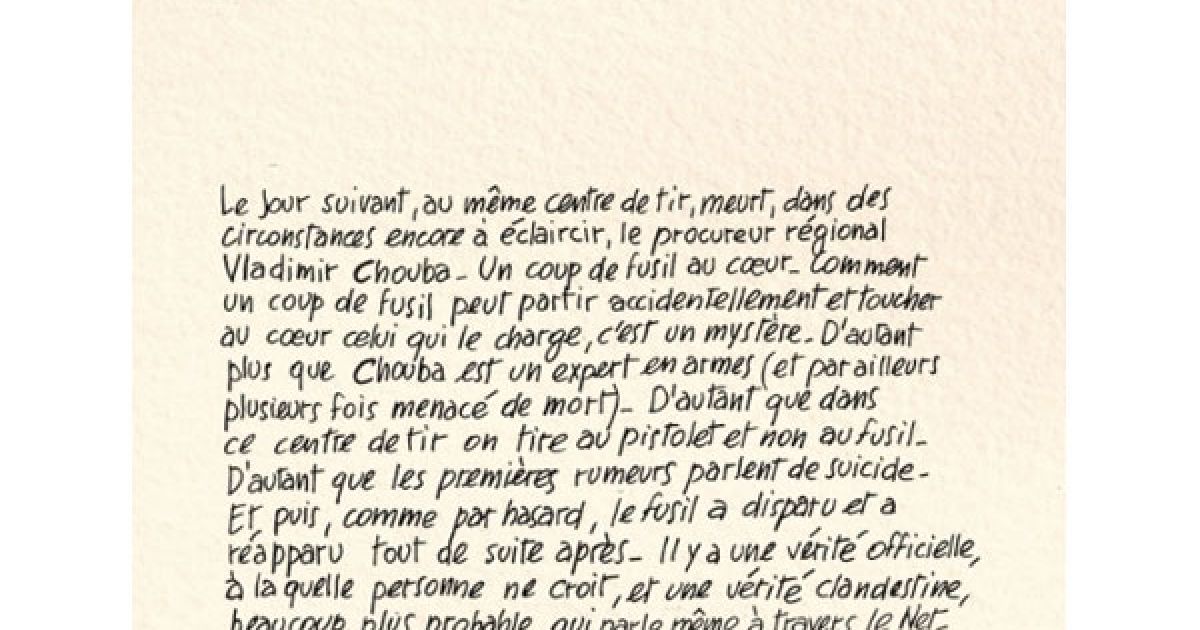 Le Jour suivant, au même centre de tir, meurt, dans des
circonstances encore à éclaircir, le procureur régional
Vladimir Chouba_ Un coup de fusil au cœur_ Comment
un coup de fusil peut partir accidentellement et toucher
au cœur celui qui le charge, c'est un mystère_ D'autant
plus que Chouba est un expert en armes (et par ailleurs
plusieurs fois menacé de mort)_ D'autant que dans
ce centre de tir on tire au pistolet et non au fusil_
D'autant que les premières rumeurs parlent de suicide_
Et puis, comme par hasard, le fusil a disparu et a
réapparu tout de suite après_ Il y a une vérité officielle,
à la quelle personne ne croit, et une vérité clandestine,
beaucoup plus probable, qui parle même à travers le Net_